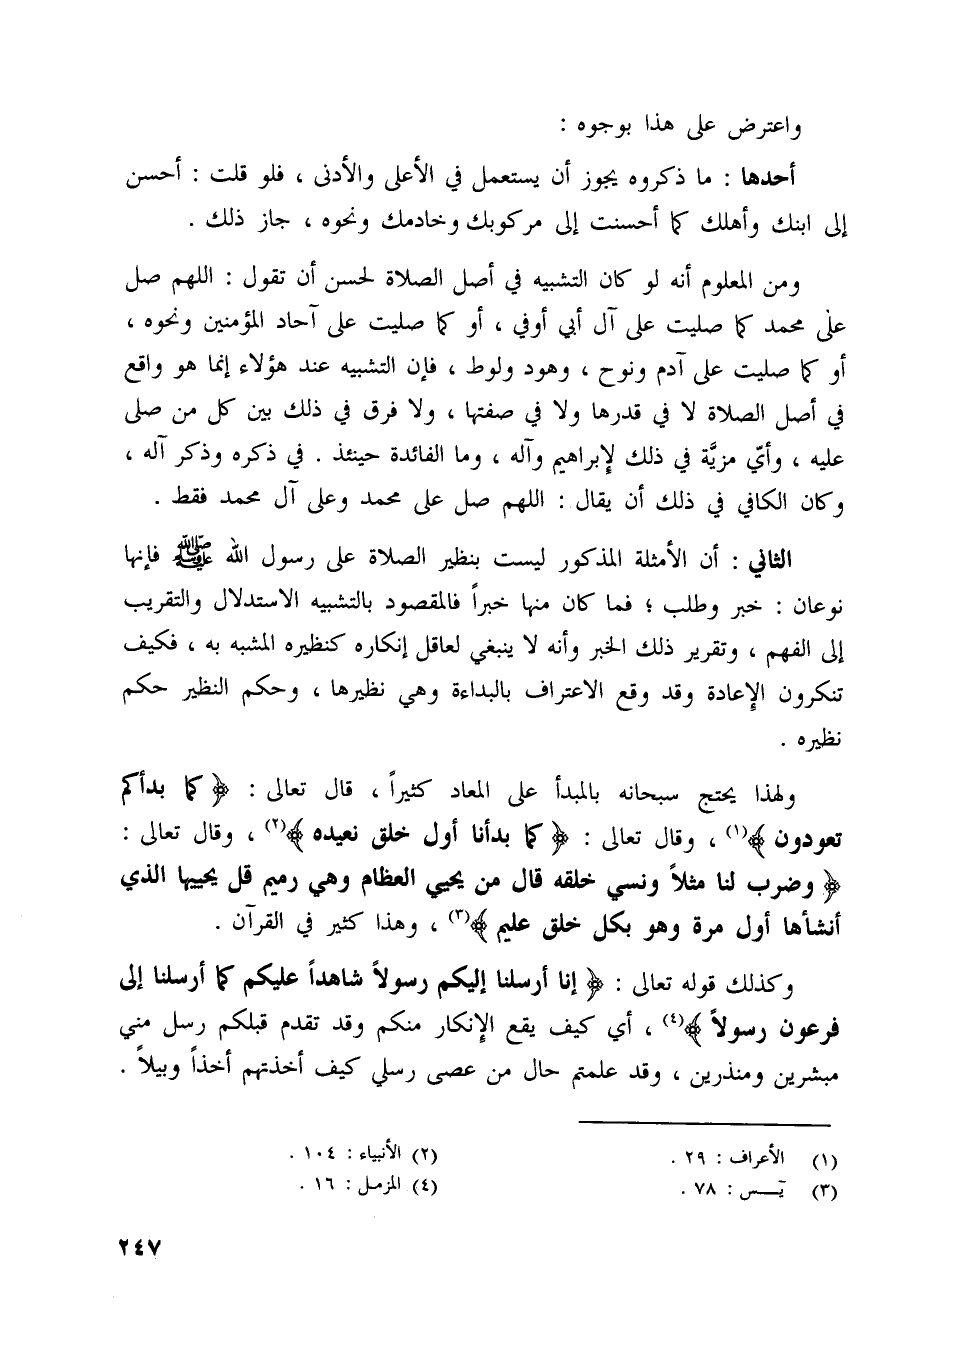 واعترض على هذا بوجوه :
أحدها : ما ذكروه يجوز أن يستعمل في الأعلى والأدنى ، فلو قلت : أحسن
إلى ابنك وأهلك كما أحسنت إلى مركوبك وخادمك ونحوه ، جاز ذلك .
ومن المعلوم أنه لو كان التشبيه في أصل الصلاة لحسن أن تقول : اللهم صل
على محمد كما صليت على آل أبي أوفي ، أو كما صليت على آحاد المؤمنين ونحوه ،
أو كما صليت على آدم ونوح ، وهود ولوط ، فإن التشبيه عند هؤلاء إنما هو واقع
في أصل الصلاة لا في قدرها ولا في صفتها ، ولا فرق في ذلك بين كل من صلى
عليه ، وأيّ مزيَّة في ذلك لإبراهيم وآله ، وما الفائدة حينئذ . في ذكره وذكر آله ،
وكان الكافي في ذلك أن يقال : اللهم صل على محمد وعلى آل محمد فقط .
الثاني : أن الأمثلة المذكور ليست بنظير الصلاة على رسول الله ﷺ فإنها
نوعان : خبر وطلب ؛ فما كان منها خبراً فالمقصود بالتشبيه الاستدلال والتقريب
إلى الفهم ، وتقرير ذلك الخبر وأنه لا ينبغي لعاقل إنكاره كنظيره المشبه به ، فكيف
تنكرون الإعادة وقد وقع الاعتراف بالبداءة وهي نظيرها ، وحكم النظير حكم
نظيره .
ولهذا يحتج سبحانه بالمبدأ على المعاد كثيراً ، قال تعالى : ﴿ كما بدأكم
تعودون ﴾(١) ، وقال تعالى : ﴿ كما بدأنا أول خلق نعيده ﴾(٢) ، وقال تعالى :
﴿ وضرب لنا مثلاً ونسي خلقه قال من يحيي العظام وهي رميم قل يحييها الذي
أنشأها أول مرة وهو بكل خلق عليم ﴾(٣) ، وهذا كثير في القرآن .
وكذلك قوله تعالى : ﴿ إنا أرسلنا إليكم رسولاً شاهداً عليكم كما أرسلنا إلى
فرعون رسولاً ﴾(٤) ، أي كيف يقع الإنكار منكم وقد تقدم قبلكم رسل مني
مبشرين ومنذرين ، وقد علمتم حال من عصى رسلي كيف أخذتهم أخذاً وبيلاً .
(١) الأعراف : ٢٩ . (٢) الأنبياء : ١٠٤ .
(٣) يَـس : ٧٨ . (٤) المزمل : ١٦ .
٢٤٧